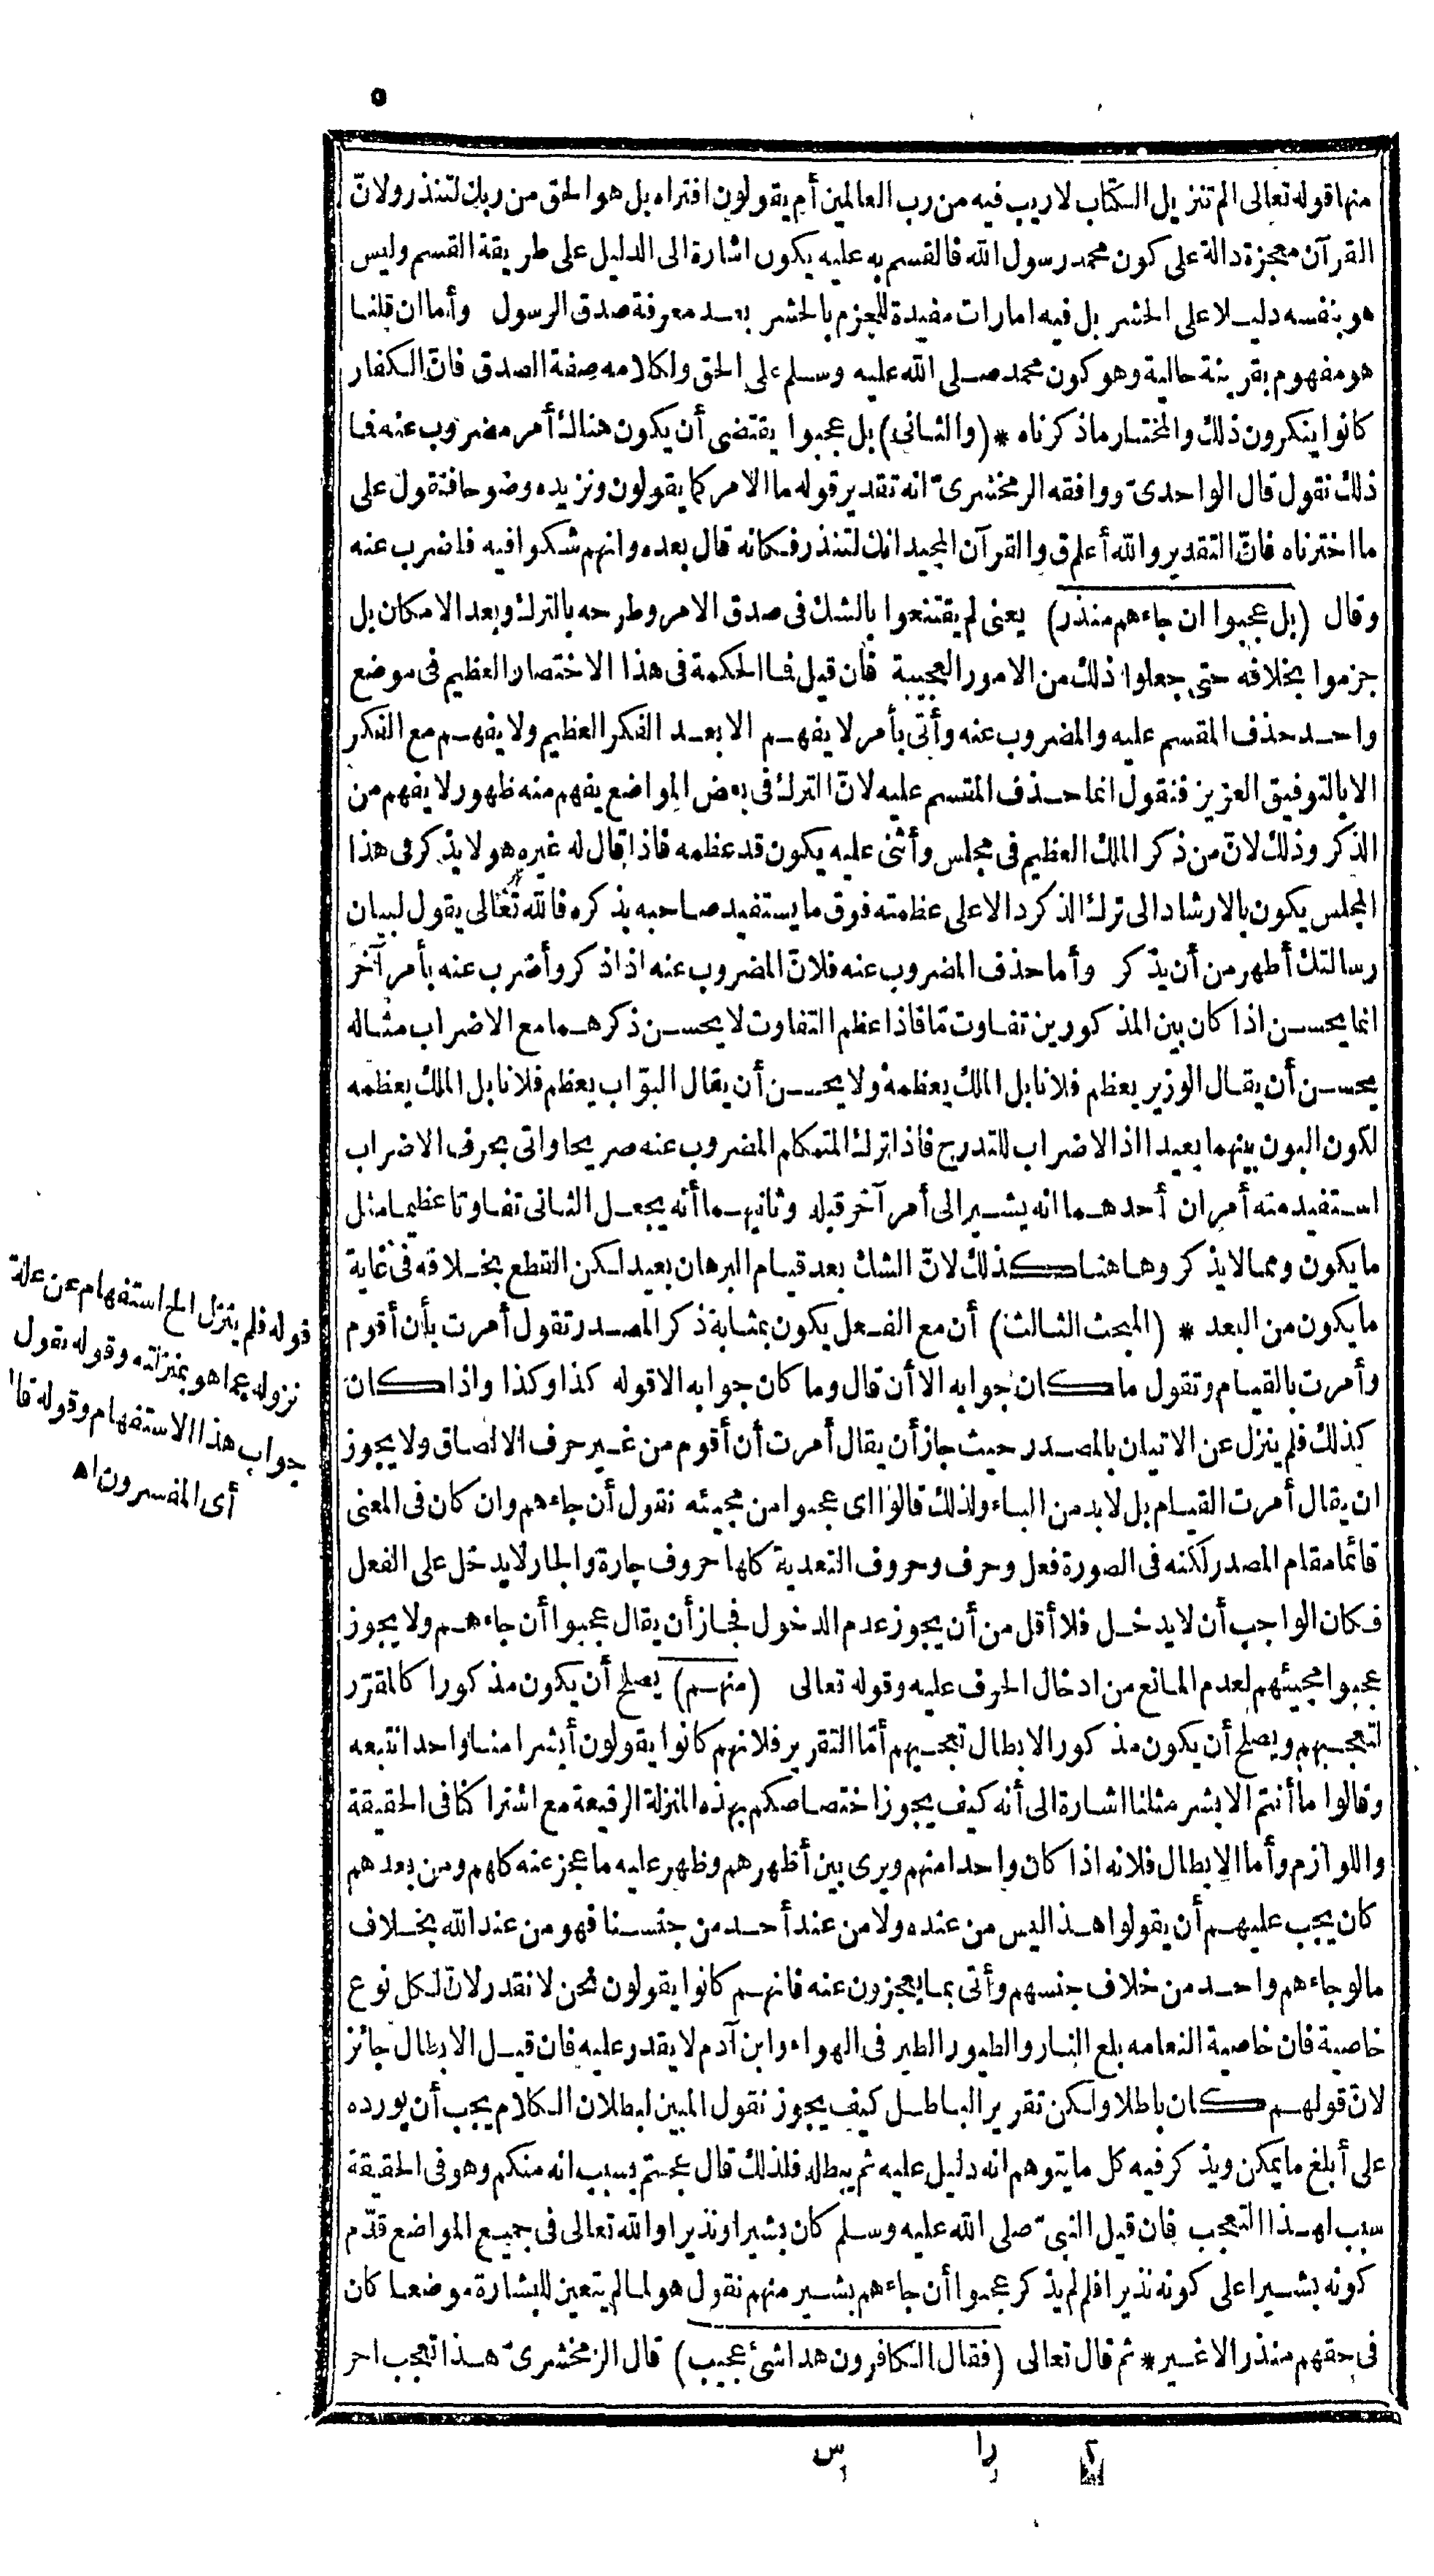 ٥
منها قوله تعالى الم تنزيل الكتاب لا ريب فيه من رب العالمين أم يقولون افتراه بل هو الحق من ربك لتنذر ولانّ
القرآن معجزة دالة على كون محمد رسول الله فالقسم به عليه يكون اشارة الى الدليل على طريقة القسم وليس
هو بنفسه دليلا على الحشر بل فيه امارات مفيدة للجزم بالحشر بعد معرفة صدق الرسول وأما ان قلنا
هو مفهوم بقرينة حالية وهو كون محمد صلى الله عليه وسلم على الحق ولكلامه صفة الصدق فانّ الكفار
كانوا ينكرون ذلك والمختار ما ذكرناه * (والثانى) بل عجبوا يقتضى أن يكون هناك أمر مضروب عنه فما
ذلك نقول قال الواحدىّ ووافقه الزمخشرىّ انه تقدير قوله ما الامر كما يقولون ونزيده وضوحا فنقول على
ما اخترناه فانّ التقدير والله أعلم ق والقرآن المجيد انك لتنذر فكانه قال بعده وانهم شكوا فيه فاضرب عنه
وقال (بل عجبوا ان جاءهم منذر) يعنى لم يقتنعوا بالشك فى صدق الامر وطرحه بالترك وبعد الامكان بل
جزموا بخلافه حتى جعلوا ذلك من الامور العجيبة فان قيل فما الحكمة فى هذا الاختصار العظيم فى موضع
واحد حذف المقسم عليه والمضروب عنه وأتى بأمر لا يفهم الا بعد الفكر العظيم ولا يفهم مع الفكر
الا بالتوفيق العزيز فنقول انما حذف المقسم عليه لانّ الترك فى بعض المواضع يفهم منه ظهور لا يفهم من
الذكر وذلك لانّ من ذكر الملك العظيم فى مجلس وأثنى عليه يكون قد عظمه فاذا قال له غيره هو لا يذكر فى هذا
المجلس يكون بالارشاد الى ترك الذكر دالا على عظمته فوق ما يستفيد صاحبه بذكره فالله تعالى يقول لبيان
رسالتك أظهر من أن يذكر وأما حذف المضروب عنه فلانّ المضروب عنه اذا ذكر وأضرب عنه بأمر آخر
انما يحسن اذا كان بين المذكورين تفاوت مّا فاذا عظم التفاوت لا يحسن ذكرهما مع الاضراب مثاله
يحسن أن يقال الوزير يعظم فلانا بل الملك يعظمه ولا يحسن أن يقال البوّاب يعظم فلانا بل الملك يعظمه
لكون البون بينهما بعيدا اذ الاضراب للتدرج فاذا ترك المتكلم المضروب عنه صريحا واتى بحرف الاضراب
استفيد منه أمران أحدهما انه يشير الى أمر آخر قبله وثانيهما أنه يجعل الثانى تفاوتا عظيما مثل
ما يكون ومما لا يذكر وهاهنا كذلك لانّ الشك بعد قيام البرهان بعيد لكن القطع بخلافه فى غاية
ما يكون من البعد * (المبحث الثالث) أن مع الفعل يكون بمثابة ذكر المصدر تقول أمرت بأن أقوم
وأمرت بالقيام وتقول ما كان جوابه الا أن قال وما كان جوابه الا قوله كذا وكذا واذا كان
كذلك فلم ينزل عن الاتيان بالمصدر حيث جاز أن يقال أمرت أن أقوم من غير حرف الالصاق ولا يجوز
ان يقال أمرت القيام بل لا بد من الباء ولذلك قالوا اى عجبوا من مجيئه نقول أن جاءهم وان كان فى المعنى
قائما مقام المصدر لكنه فى الصورة فعل وحرف وحروف التعدية كلها حروف جارة والجار لا يدخل على الفعل
فكان الواجب أن لا يدخل فلا أقل من أن يجوز عدم الدخول فجاز أن يقال عجبوا أن جاءهم ولا يجوز
عجبوا مجيئهم لعدم المانع من ادخال الحرف عليه وقوله تعالى (منهم) يصلح أن يكون مذكورا كالمقرّر
لتعجبهم ويصلح أن يكون مذكورا لابطال تعجبهم أمّا التقرير فلانهم كانوا يقولون أبشرا منا واحدا نتبعه
وقالوا ما أنتم الا بشر مثلنا اشارة الى أنه كيف يجوز اختصاصكم بهذه المنزلة الرفيعة مع اشتراكنا فى الحقيقة
واللوازم وأما الابطال فلانه اذا كان واحدا منهم ويرى بين أظهرهم وظهر عليه ما عجز عنه كلهم ومن بعدهم
كان يجب عليهم أن يقولوا هذا ليس من عنده ولا من عند أحد من جنسنا فهو من عند الله بخلاف
ما لو جاءهم واحد من خلاف جنسهم وأتى بما يعجزون عنه فانهم كانوا يقولون نحن لا نقدر لانّ لكل نوع
خاصية فان خاصية النعامه بلع النار والطيور الطير فى الهواء وابن آدم لا يقدر عليه فان قيل الابطال جائز
لانّ قولهم كان باطلا ولكن تقرير الباطل كيف يجوز نقول المبين لبطلان الكلام يجب أن يورده
على أبلغ ما يمكن ويذكر فيه كل ما يتوهم انه دليل عليه ثم يبطله فلذلك قال عجبتم بسبب انه منكم وهو فى الحقيقة
سبب لهذا التعجب فان قيل النبىّ صلى الله عليه وسلم كان بشيرا ونذيرا والله تعالى فى جميع المواضع قدّم
كونه بشيرا على كونه نذيرا فلم لم يذكر عجبوا أن جاءهم بشير منهم نقول هو لما لم يتعين للبشارة موضعا كان
فى حقهم منذرا لا غير * ثم قال تعالى (فقال الكافرون هذا شئ عجيب) قال الزمخشرىّ هذا تعجب اخر
٢ را س
قوله فلم ينزل الخ استفهام عن علة
نزوله عما هو بمنزلته وقوله نقول
جواب هذا الاستفهام وقوله قالوا
أى المفسرون اه